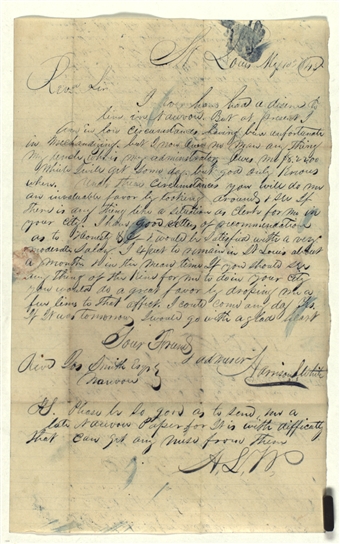 St Louis May
Revd Sir
I have long had a desire to
live in Nauvoo. But at present I
am in low circumstances having been unfortunate
in Merchandising, but I now owe no Man any thing
My uncle who is my administrator owes me
Which I will get some day but god only knows
when. Under these circumstances you will do me
an invaluable favor by looking around & see If
There is any thing like a situation as Clerk for me in
your City. I have good letters of recommendation
as to Honesty &c I would be Satisfied with a very
moderate Salary. I expect to remain in St Louis about
a month & in the mean time If you should see
any thing of the kind for me to do in your City
you would do a great favor by droping me a
few lines to that effect. I could come any day
If It was tomorrow I would go with a glad heart
Your Friend
and
Revd Jos Smith Esqr
Nauvoo
PS. Please be so good as to send me a
late Nauvoo Paper for It is with difficulty
that I can get any news from there
A. L. W